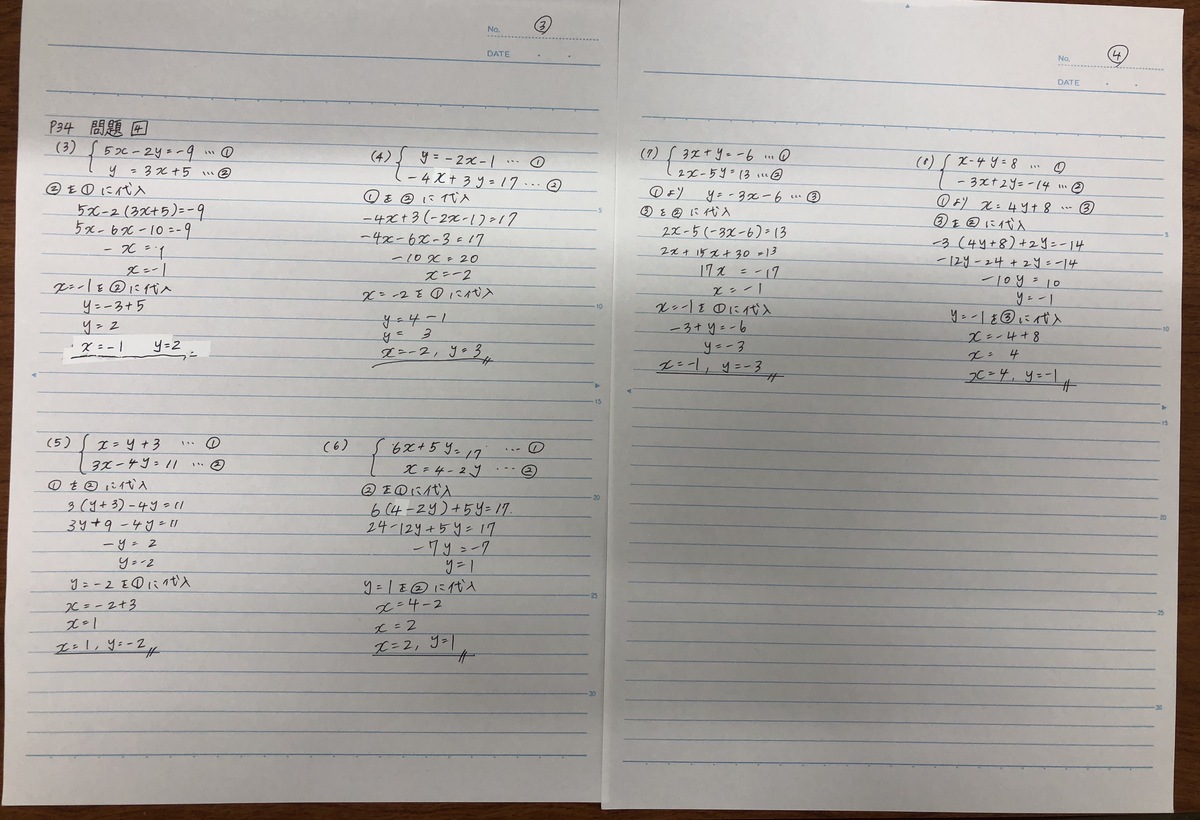 No. ③
DATE . .
P34 問題 4
(3) { 5x-2y=-9 … ①
y = 3x+5 … ②
②を①に代入
5x-2(3x+5)=-9
5x-6x-10=-9
-x=1
x=-1
x=-1を②に代入
y=-3+5
y=2
x=-1 y=2
(4) { y=-2x-1 … ①
-4x+3y=17 … ②
①を②に代入
-4x+3(-2x-1)=17
-4x-6x-3=17
-10x=20
x=-2
x=-2を①に代入
y=4-1
y= 3
x=-2, y=3
(5) { x=y+3 … ①
3x-4y=11 … ②
①を②に代入
3(y+3)-4y=11
3y+9-4y=11
-y=2
y=-2
y=-2を①に代入
x=-2+3
x=1
x=1, y=-2
(6) { 6x+5y=17 … ①
x=4-2y … ②
②を①に代入
6(4-2y)+5y=17
24-12y+5y=17
-7y=-7
y=1
y=1を②に代入
x=4-2
x=2
x=2, y=1
5
10
15
20
25
30
No. ④
DATE
(7) { 3x+y=-6 … ①
2x-5y=13 … ②
①より y=-3x-6 … ③
③を②に代入
2x-5(-3x-6)=13
2x+15x+30=13
17x =-17
x=-1
x=-1を①に代入
-3+y=-6
y=-3
x=-1, y=-3
(8) { x-4y=8 … ①
-3x+2y=-14 … ②
①より x=4y+8 … ③
③を②に代入
-3(4y+8)+2y=-14
-12y-24+2y=-14
-10y=10
y=-1
y=-1を③に代入
x=-4+8
x= 4
x=4, y=-1
5
10
15
20
25
30